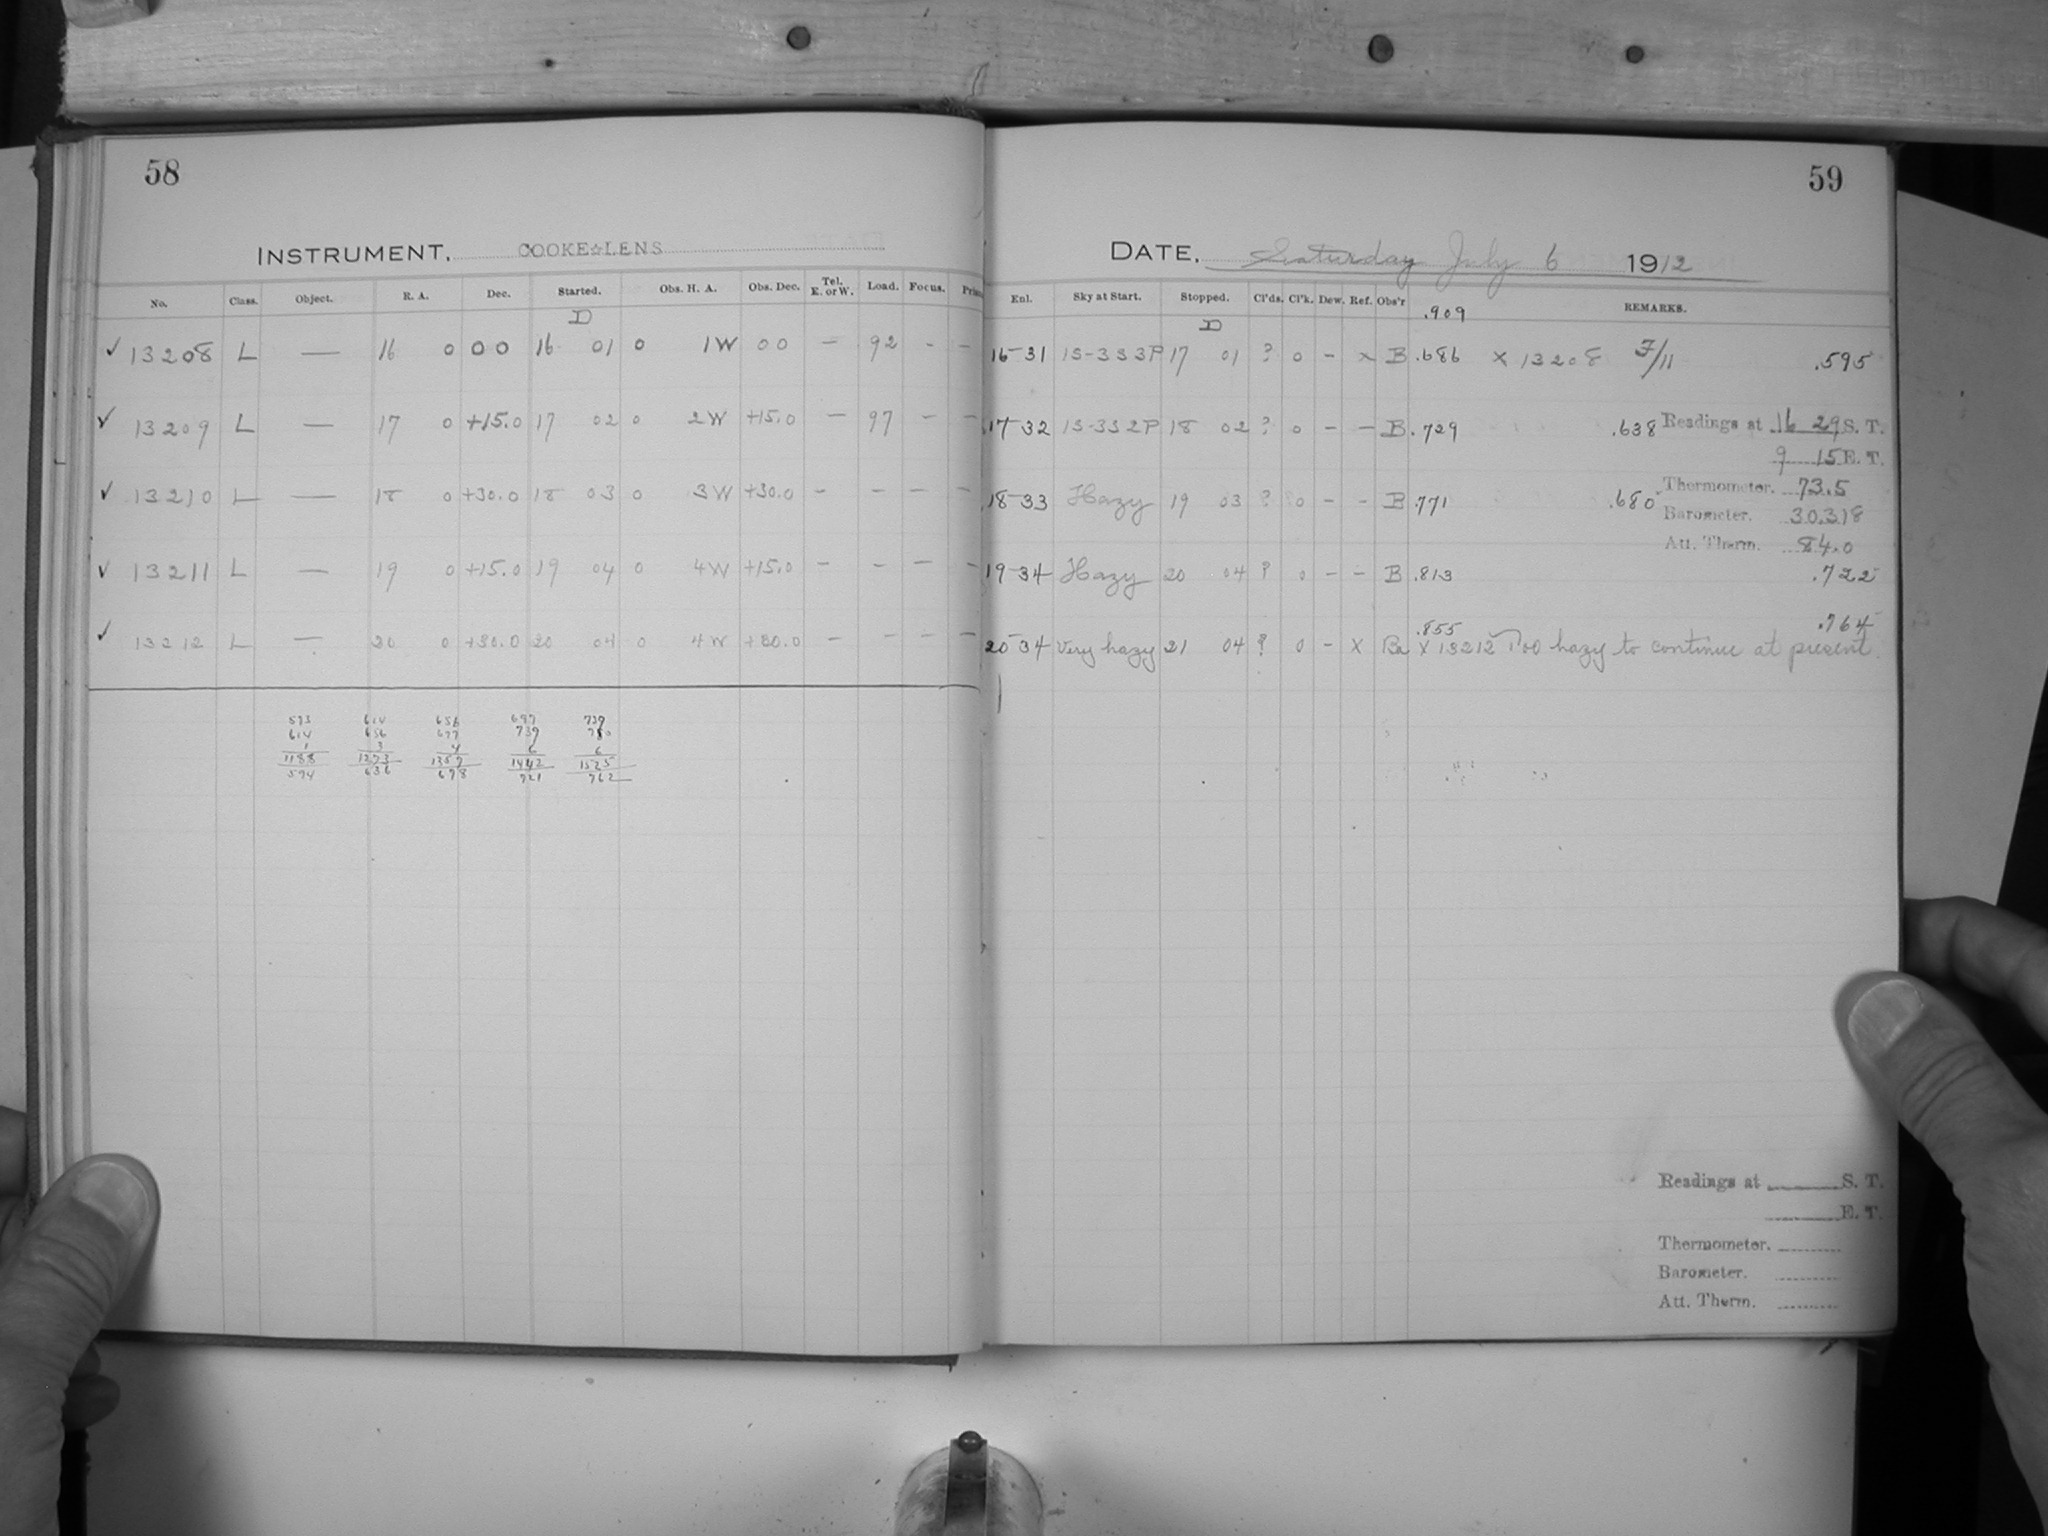 58
INSTRUMENT. COOKE☆LENS
No. Class. Object. R. A. Dec. Started. Obs. H. A. Obs. Dec. Tel. E. or W. Load. Focus.
D
✓ 13208 L — 16 0 0 0 16 01 0 1W 0 0 — 92 - -
✓ 13209 L — 17 0 +15.0 17 02 0 2W +15.0 — 97 - -
✓ 13210 L — 18 0 +30.0 18 03 0 3W +30.0 - - - -
✓ 13211 L — 19 0 +15.0 19 04 0 4W +15.0 - - - -
✓ 13212 L — 20 0 +30.0 20 04 0 4W +30.0 - - - -
593 614 656 697 739
614 656 677 739 780
1 3 4 6 6
1188 1273 1357 1442 1525
594 636 678 721 762
59
DATE. Saturday July 6 1912
Enl. Sky at Start. Stopped. Cl'ds. Cl'k. Dew. Ref. Obs'r REMARKS.
D .909
16-31 1S-3S3P 17 01 ? 0 - x B .686 X 13208 F/11 .595
17-32 1S-3S2P 18 02 ? 0 - - B .729 .638 Readings at 16 29 S. T.
9 15 E. T.
18-33 Hazy 19 03 ? 0 - - B .771 .680 Thermometer. 73.5
Barometer. 30.318
Att. Therm. 84.0
19-34 Hazy 20 04 ? 0 - - B .813 .722
.855 .764
20-34 Very hazy 21 04 ? 0 - X Ba X 13212 Too hazy to continue at present.
Readings at S. T.
E. T.
Thermometer.
Barometer.
Att. Therm.